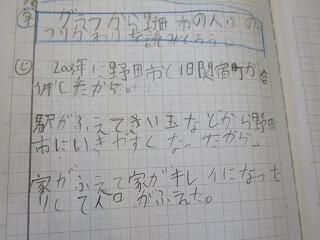 学 グラフから野田市の人口の
うつりかわりを読みとろう。
ひ 2003年に野田市と旧関宿町が合
併したから。
駅がふえてさい玉などから野田
市にいきやすくなったから。
家がふえて家がキレイになった
りして人口がふえた。